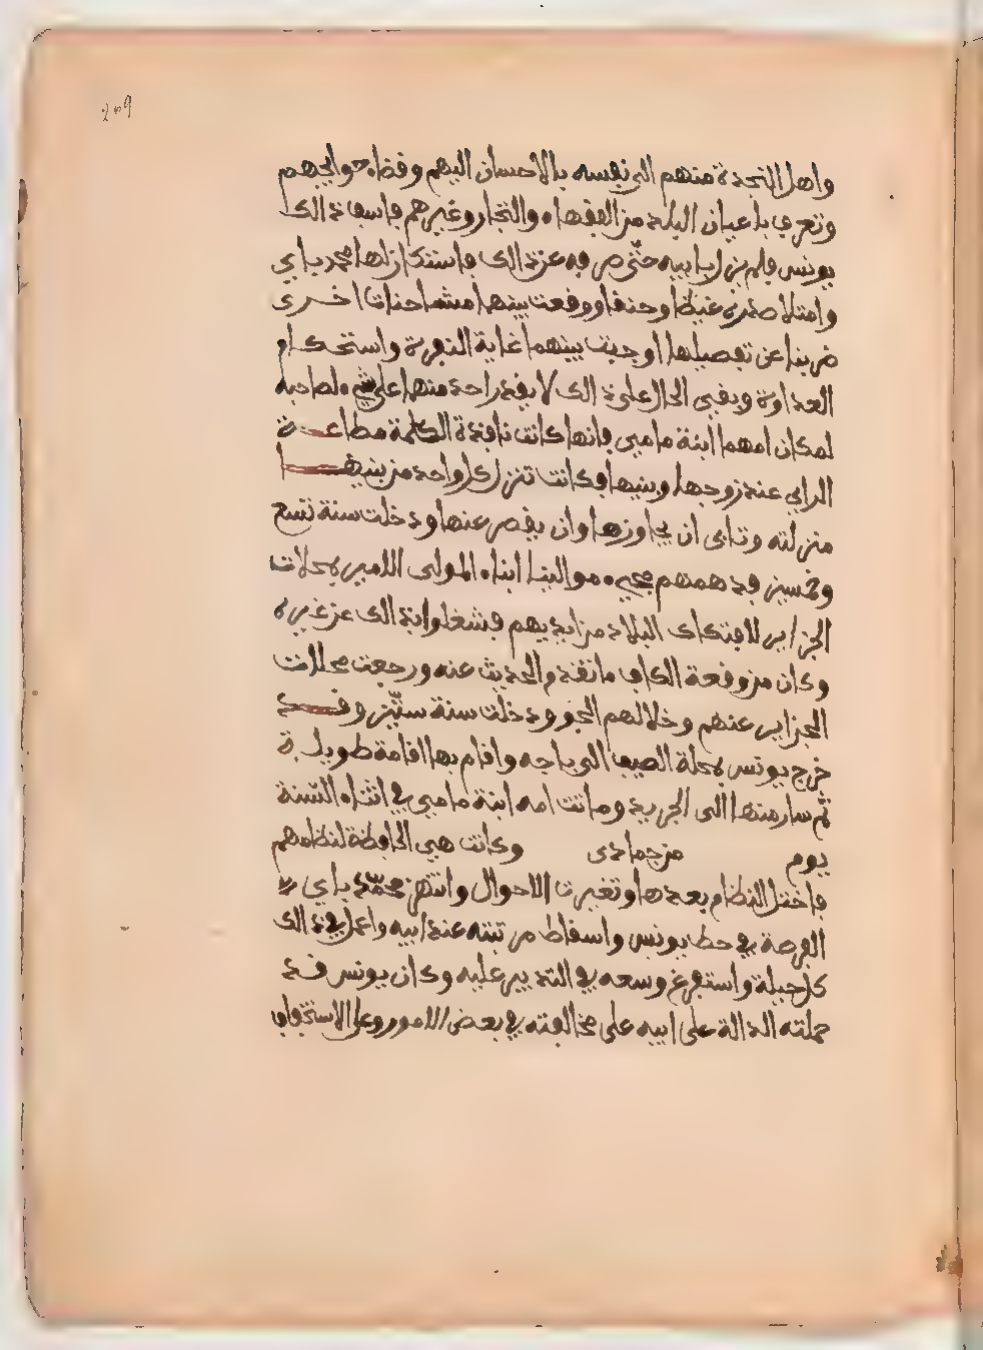 209
واهل النجدة منهم الى نفسه بالاحسان اليهم وقضاء حوائجهم
وتعرف باعيان البلد من الفقهاء والتجار وغيرهم فاسعاه ذالك
يونس فلم يزل بابيه حتى صرفه عن ذالك فاستكان لها محمد باي
وامتلا صدره غيظا وحنقا ووقعت بينهما مشاحنات اخرى
ضربنا عن تفصيلها اوجبت بينهما غاية النفرة واستحكام
العداوة وبقي الحال على ذالك لا يقدر احد منهما على شيء لصاحبه
لمكان امهما ابنة مامي فانها كانت نافذة الكلمة مطاعة
الراي عند زوجها وبنيها وكانت تنزل كل واحد من بنيها
منزلته وتابى ان يجاوزها وان يقصر عنها ودخلت سنة تسع
وخمسين فدهمتهم مجيء موالينا ابناء المولى الامير بمحلات
الجزاير لافتكاك البلاد من ايديهم فشغلوا بذالك عن غيره
وكان من وقعة الكاف ما تقدم الحديث عنه ورجعت محلات
الجزاير عنهم وخلا لهم الجو ودخلت سنة ستين وقد
خرج يونس بمحلة الصيف الى باجه واقام بها اقامة طويلة
ثم سار منها الى الجريد وماتت امه ابنة مامي في اثناء السنة
يوم من جمادى وكانت هي الحافظة لنظامهم
فاختل النظام بعدها وتغيرت الاحوال وانتهز محمد باي
الفرصة في حط يونس واسقاط مرتبته عند ابيه واعمل في ذالك
كل حيلة واستفرغ وسعه في التدبير عليه وكان يونس قد
حملته الدالة على ابيه على مخالفته في بعض الامور وعلى الاستخفاف